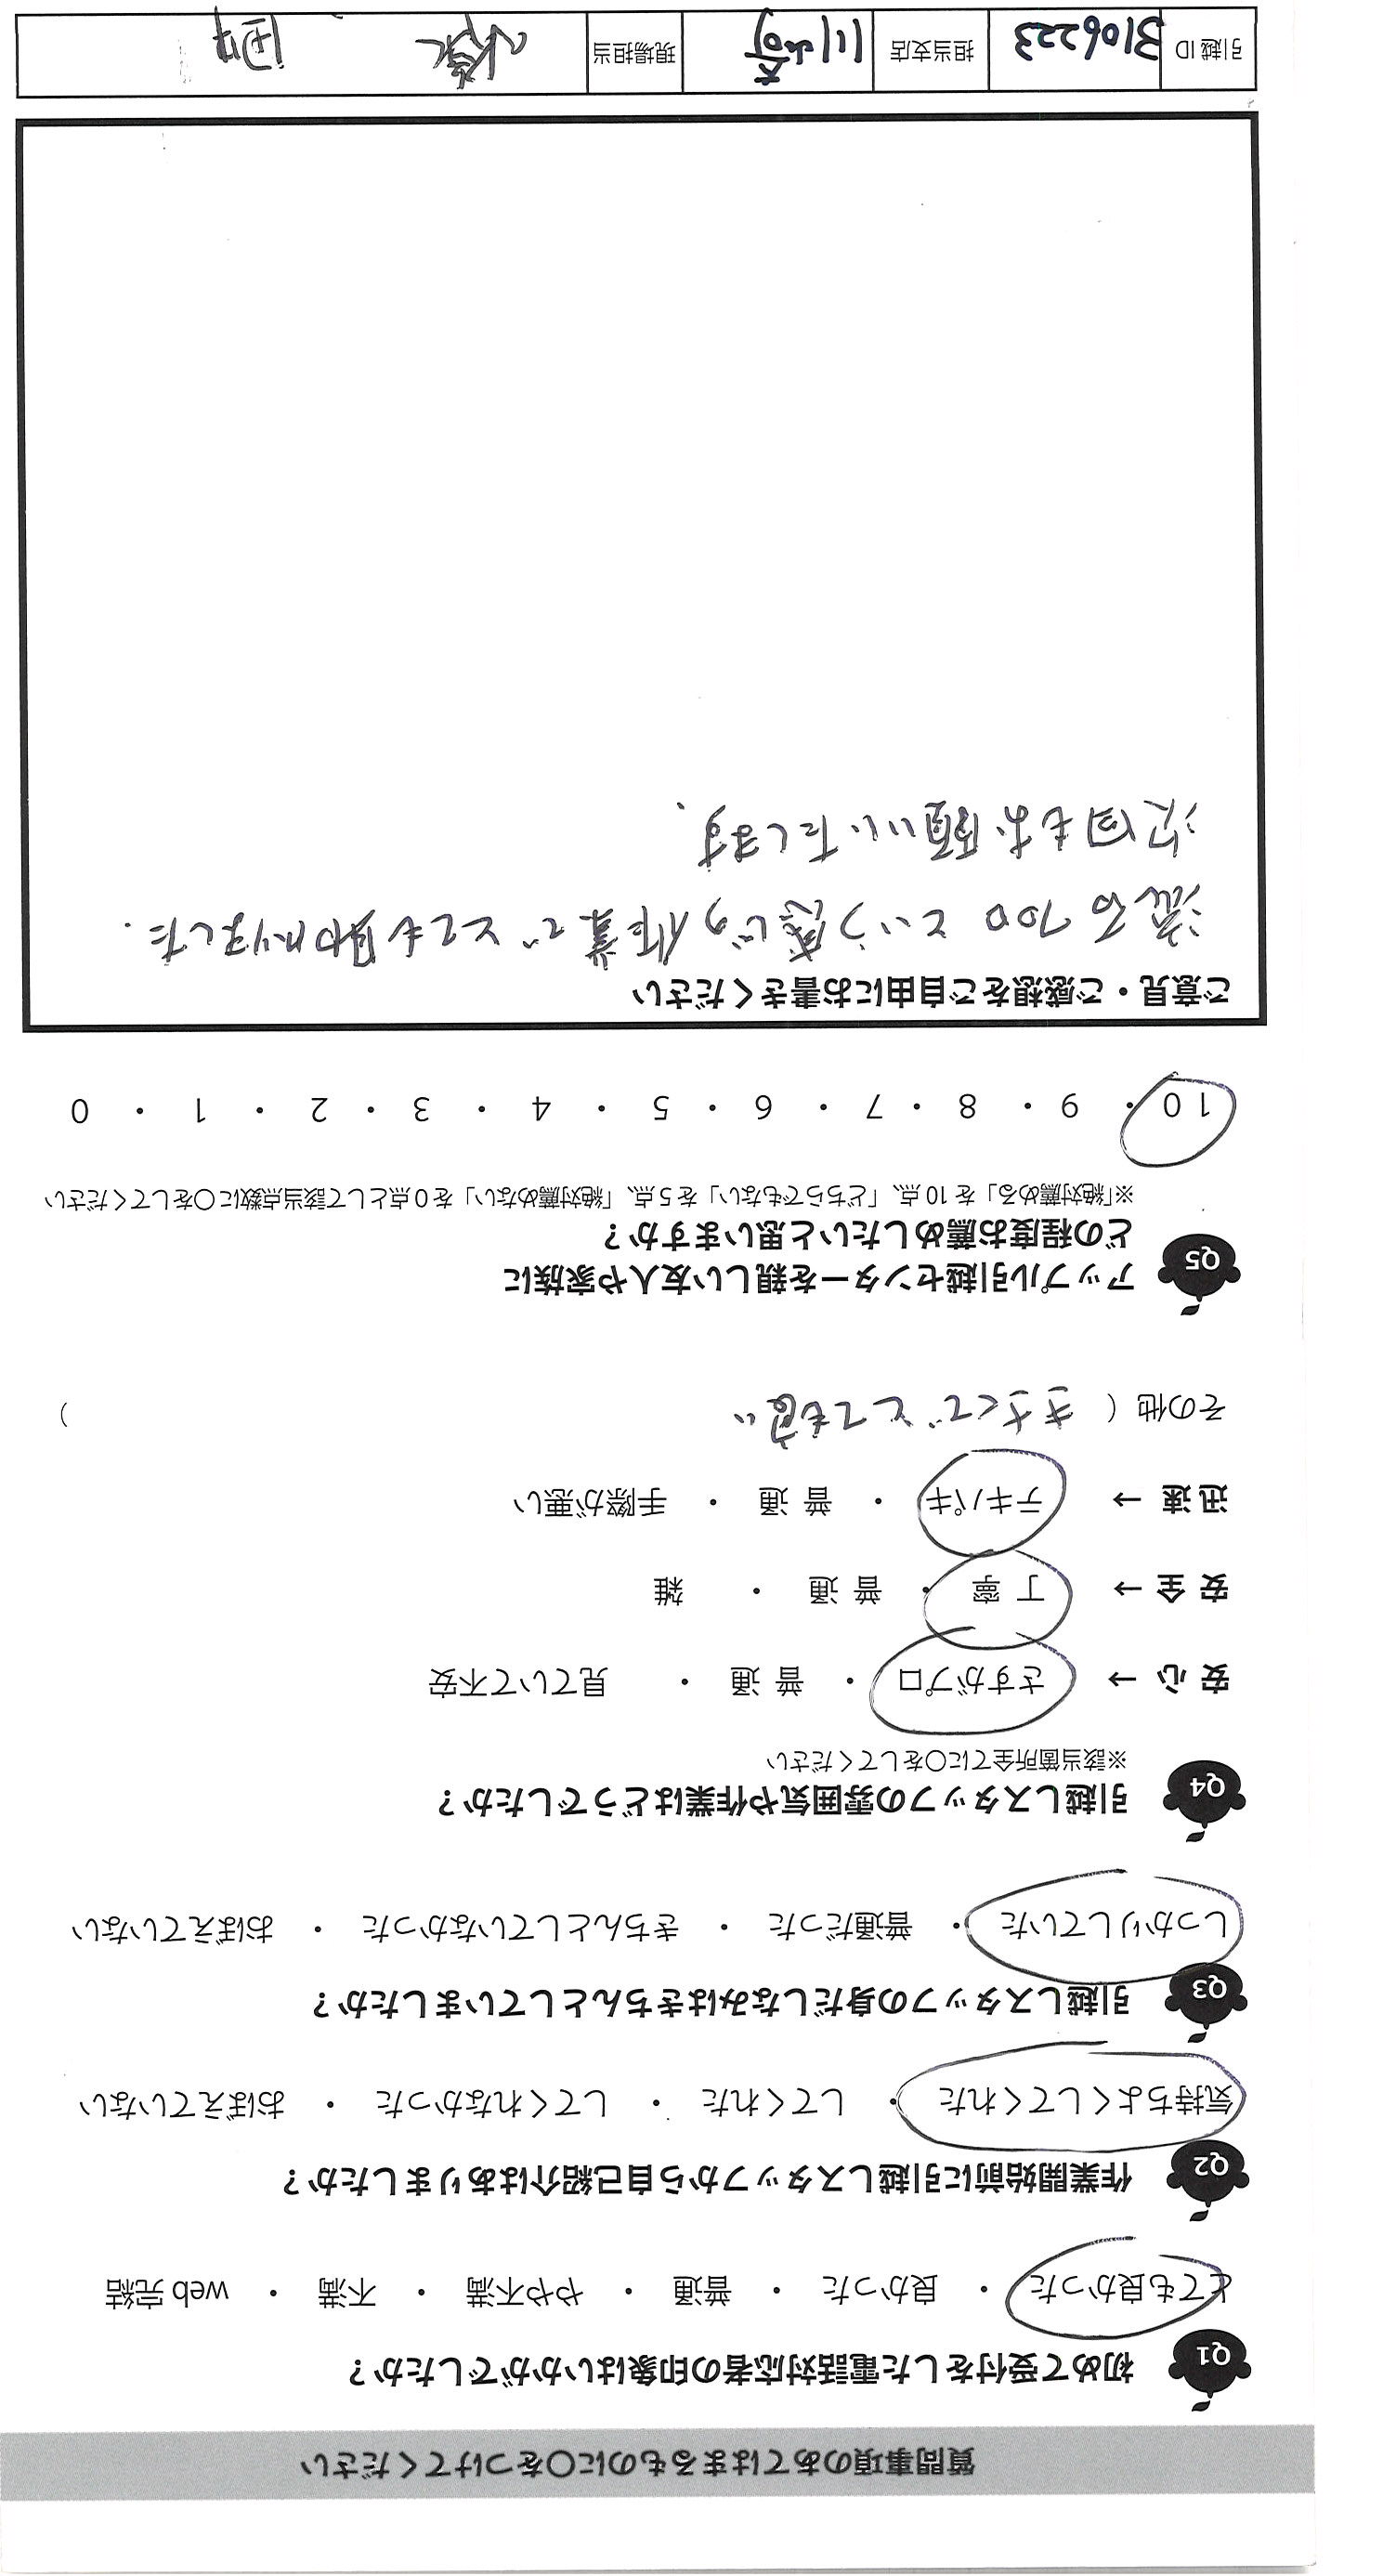 質問事項のあてはまるものに〇をつけてください
Q1 初めて受付をした電話対応者の印象はいかがでしたか？
とても良かった ・ 良かった ・ 普通 ・ やや不満 ・ 不満 ・ web 完結
Q2 作業開始前に引越しスタッフから自己紹介はありましたか？
気持ちよくしてくれた ・ してくれた ・ してくれなかった ・ おぼえていない
Q3 引越しスタッフの身だしなみはきちんとしていましたか？
しっかりしていた ・ 普通だった ・ きちんとしていなかった ・ おぼえていない
Q4 引越しスタッフの雰囲気や作業はどうでしたか？
※該当箇所全てに〇をしてください
安 心 → さすがプロ ・ 普 通 ・ 見ていて不安
安 全 → 丁 寧 ・ 普 通 ・ 雑
迅 速 → テキパキ ・ 普 通 ・ 手際が悪い
その他（ きさくでとても良い ）
Q5 アップル引越センターを親しい友人や家族に
どの程度お薦めしたいと思いますか？
※「絶対薦める」を 10 点、「どちらでもない」を 5 点、「絶対薦めない」を 0 点として該当点数に〇をしてください
10 ・ 9 ・ 8 ・ 7 ・ 6 ・ 5 ・ 4 ・ 3 ・ 2 ・ 1 ・ 0
ご意見・ご感想をご自由にお書きください
流石プロという感じの作業でとても助かりました.
次回もお願いいたします.
引越 ID 3106223 担当支店 川崎 現場担当